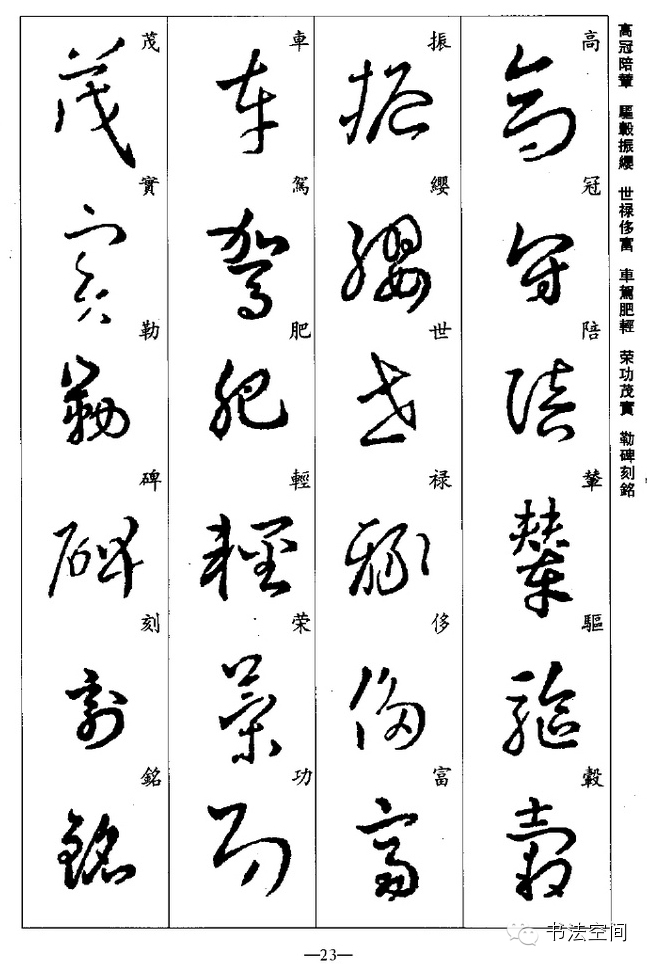 高冠陪輦 驅轂振纓 世禄侈富 車駕肥輕 荣功茂實 勒碑刻銘
高冠陪輦驅轂
振纓世禄侈富
車駕肥輕荣功
茂實勒碑刻銘
—23—
书法空间